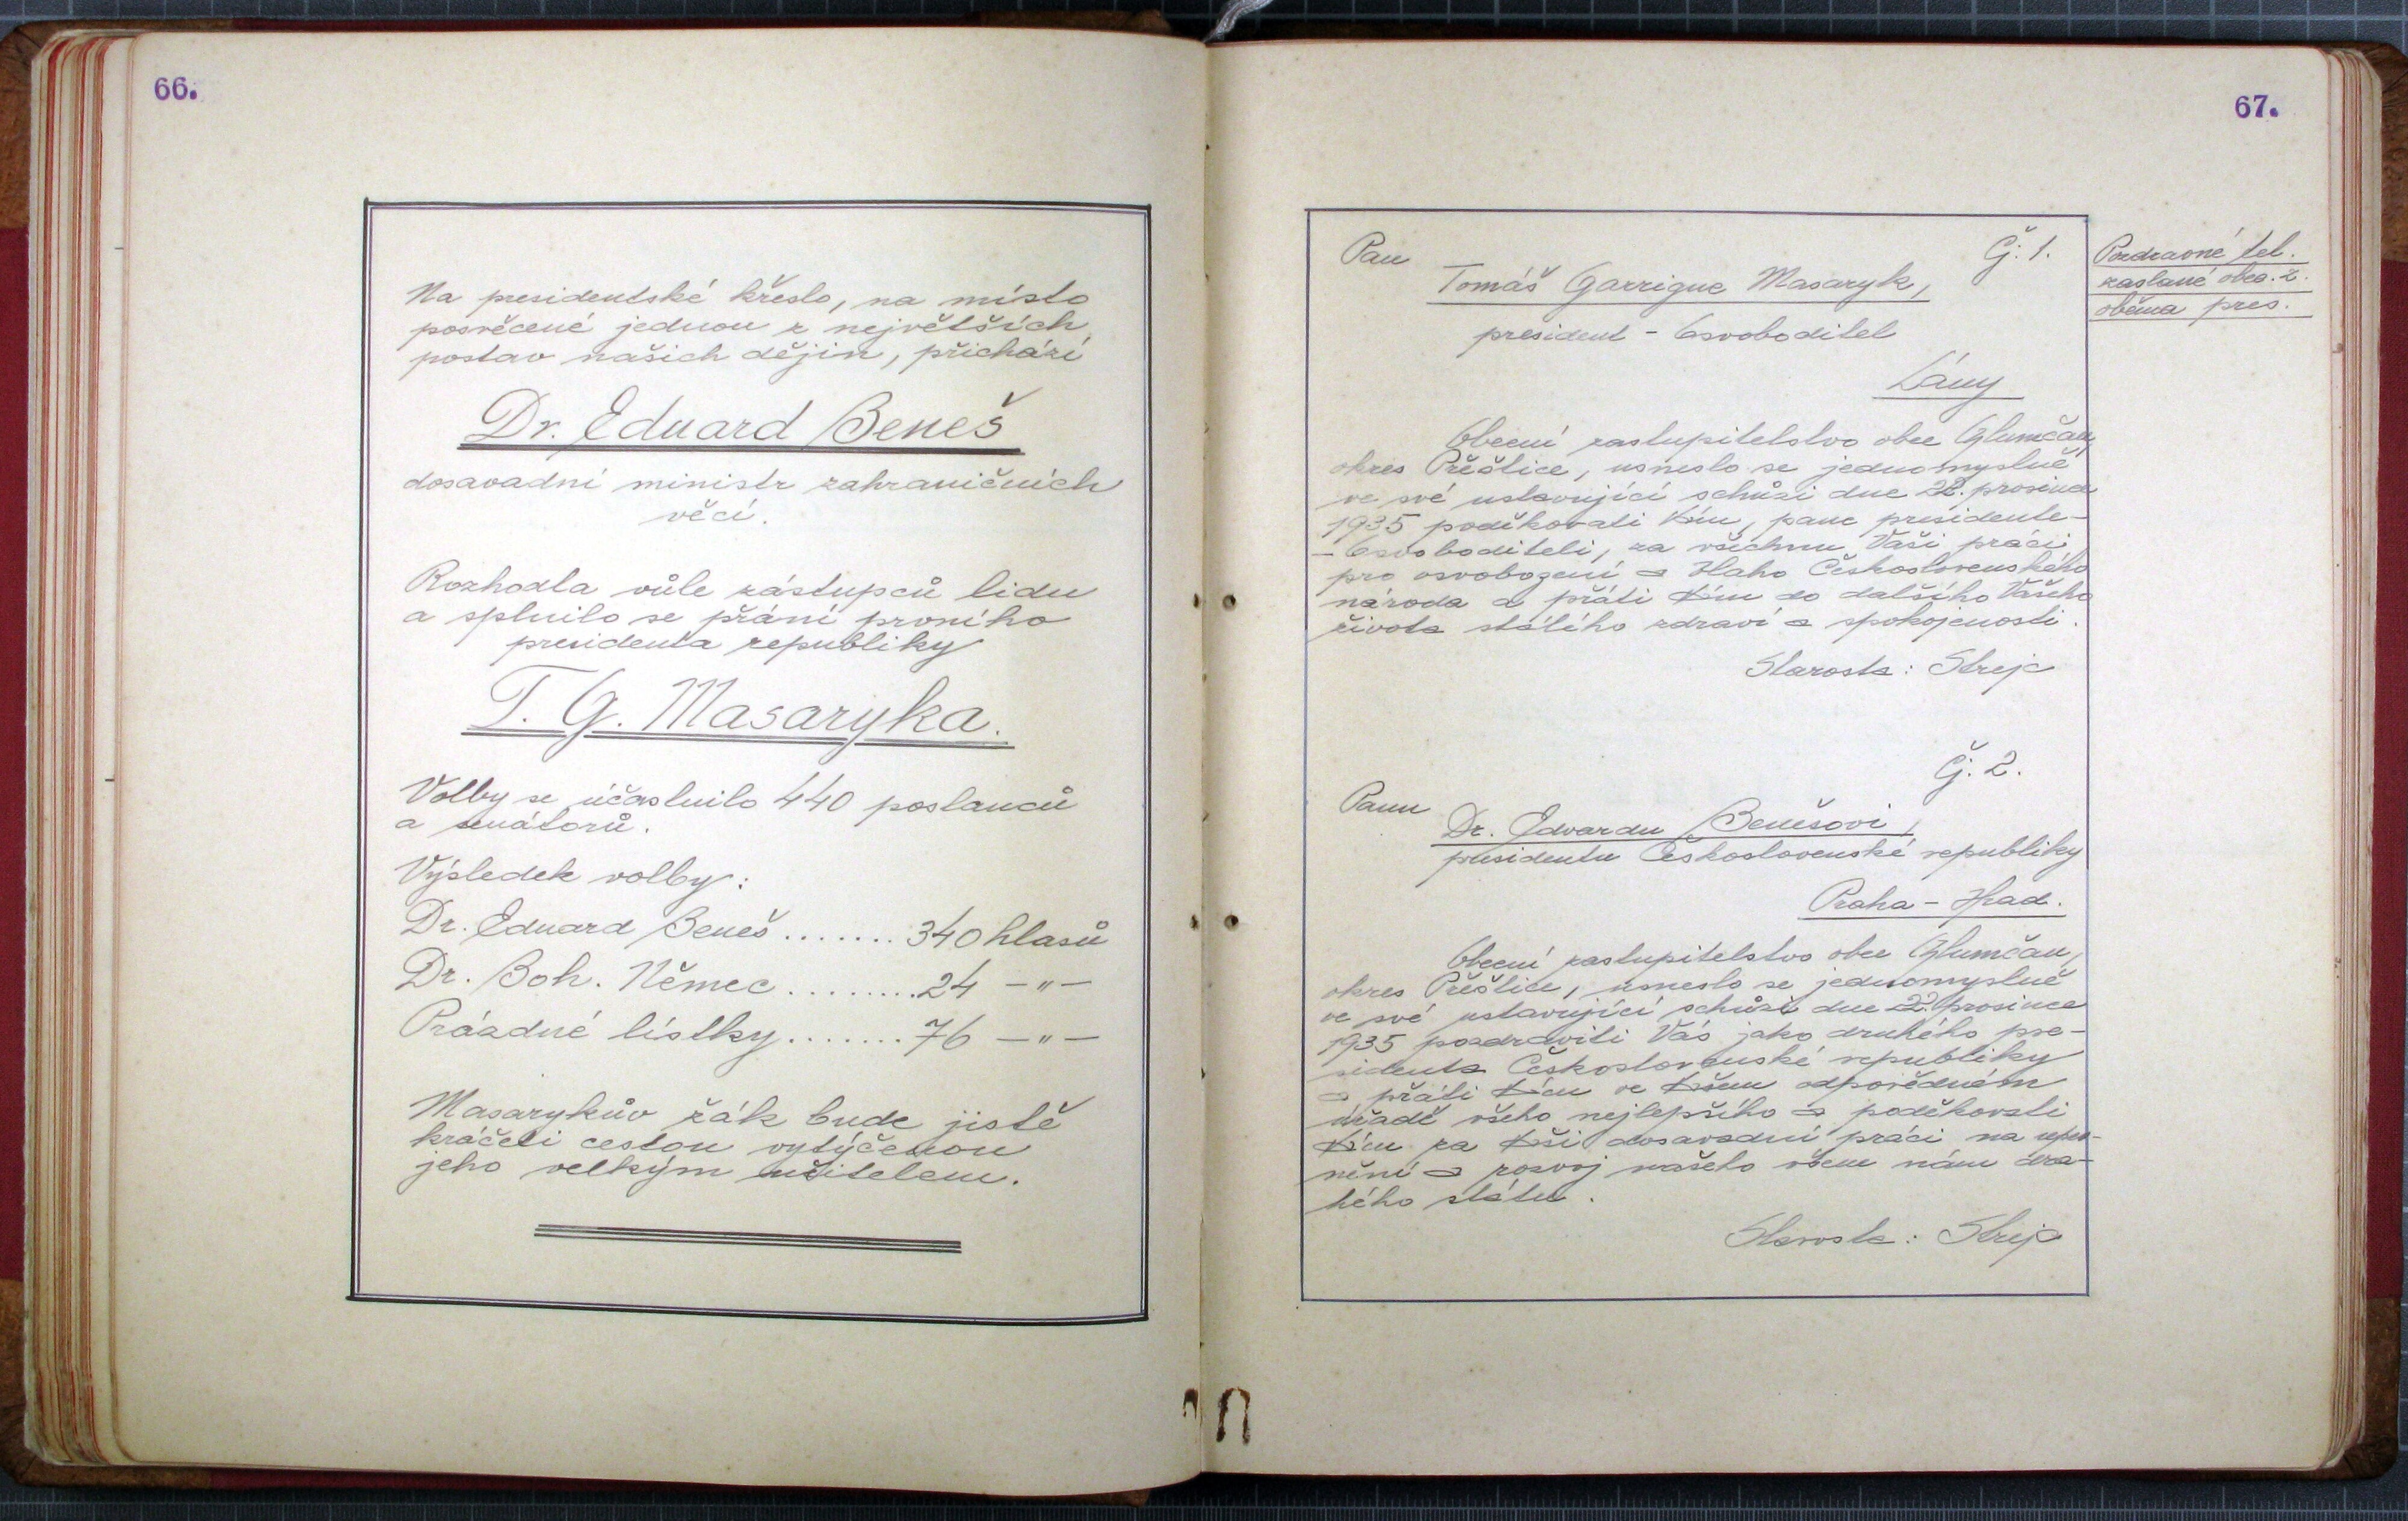 66.
Na presidentské křeslo, na místo
posvěcené jednou z největších
postav našich dějin, přichází
Dr. Eduard Beneš
dosavadní ministr zahraničních
věcí.
Rozhodla vůle zástupců lidu
a splnilo se přání prvního
presidenta republiky
T. G. Masaryka.
Volby se účastnilo 440 poslanců
a senátorů.
Výsledek volby:
Dr. Eduard Beneš ....... 340 hlasů
Dr. Boh. Němec ........ 24 —"—
Prázdné lístky ....... 76 —"—
Masarykův žák bude jistě
kráčeti cestou vytýčenou
jeho velkým učitelem.
67.
Č. 1.
Pan
Tomáš Garrigue Masaryk,
president - Osvoboditel
Lány
Obecní zastupitelstvo obce Chlumčan,
okres Přeštice, usneslo se jednomyslně
ve své ustavující schůzi dne 22. prosince
1935 poděkovati Vám, pane presidente-
- Osvoboditeli, za všechnu Vaši práci
pro osvobození a blaho Československého
národa a přáti Vám do dalšího Vašeho
života stálého zdraví a spokojenosti.
Starosta: Strejc
Pozdravné tel.
zaslané obec. z.
oběma pres.
Č. 2.
Panu
Dr. Edvardu Benešovi,
presidentu Československé republiky
Praha - Hrad.
Obecní zastupitelstvo obce Chlumčan,
okres Přeštice, usneslo se jednomyslně
ve své ustavující schůzi dne 22. prosince
1935 pozdraviti Vás jako druhého pre-
sidenta Československé republiky
a přáti Vám ve Vašem odpovědném
úřadě všeho nejlepšího a poděkovati
Vám za Vaši dosavadní práci na upev-
nění a rozvoj našeho všem nám dra-
hého státu.
Starosta: Strejc